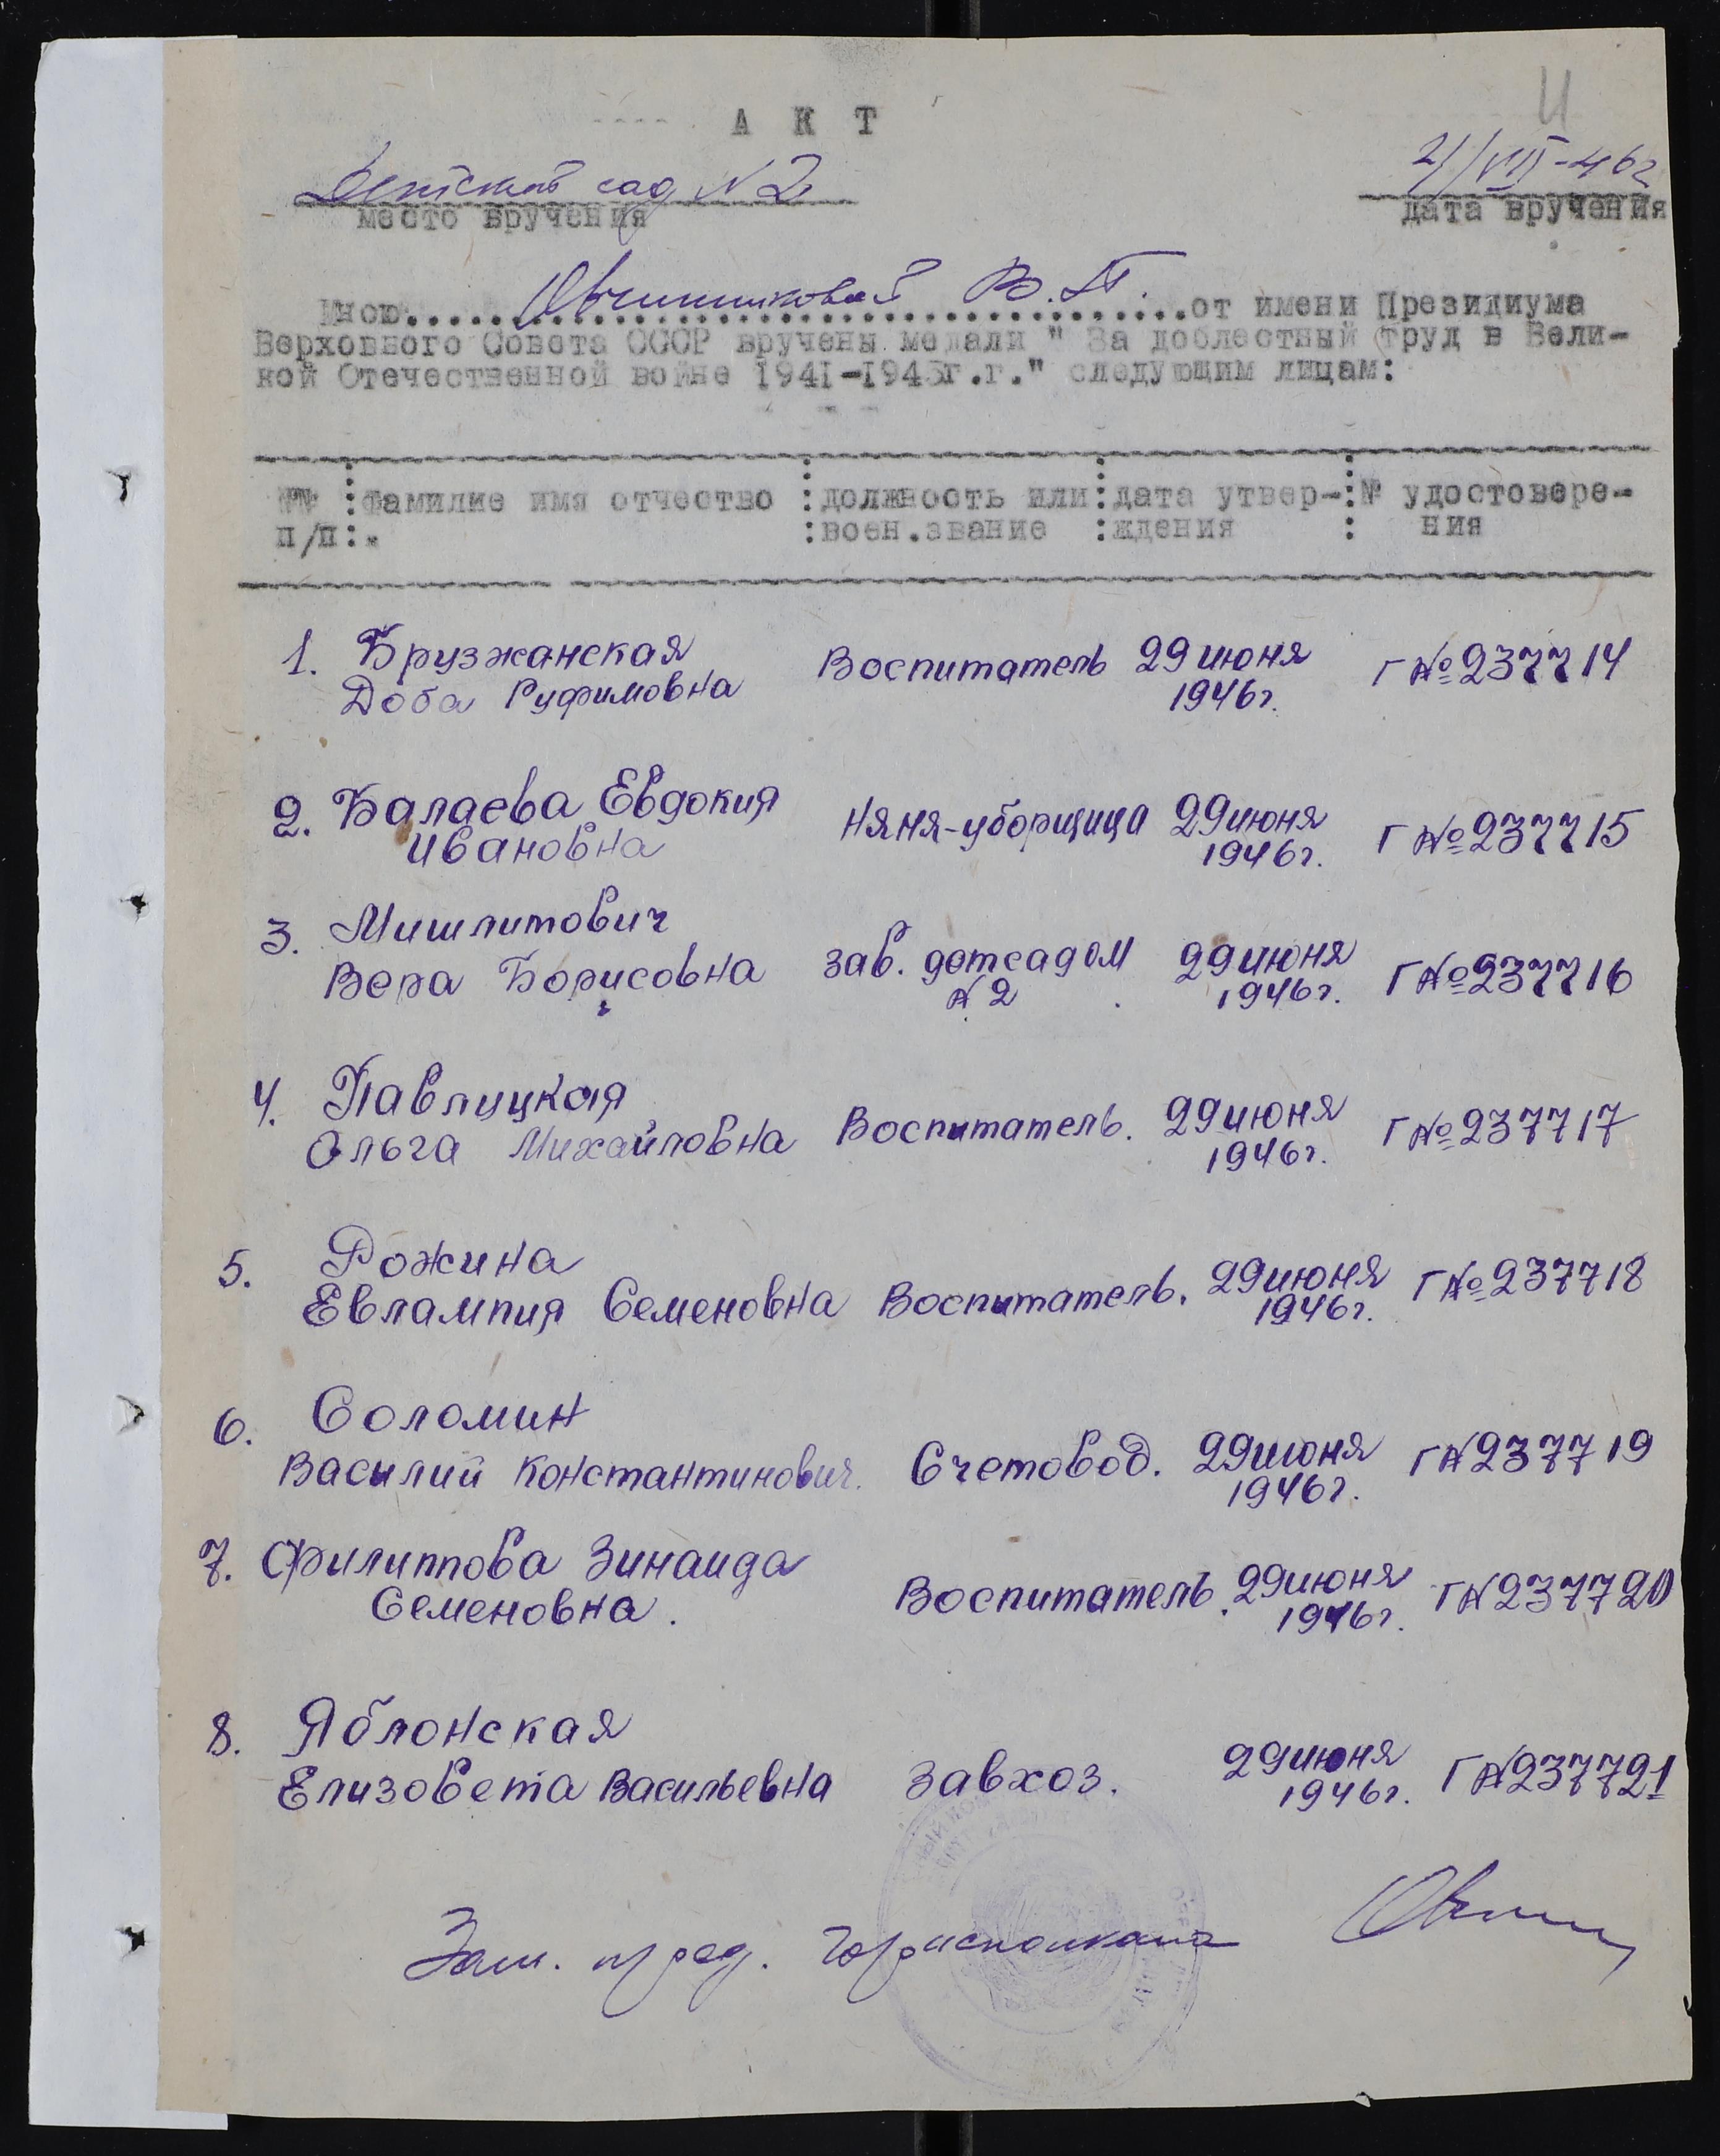 А К Т
Детский сад N 2
21/VIII-46г
место вручения
дата вручения
Мною Овчинниковой В. П. от имени Президиума
Верховного Совета СССР вручены медали " За доблестный труд в Вели-
кой Отечественной войне 1941-1945г.г." следующим лицам:
№№ : фамилие имя отчество : должность или : дата утвер- : № удостовере-
п/п : : воен.звание : ждения : ния
1. Брузжанская Воспитатель 29 июня Г №237714
Доба Руфимовна 1946г.
2. Балаева Евдокия Няня-уборщица 29 июня Г №237715
Ивановна 1946г.
3. Мишлитович зав. детсадом 29 июня Г №237716
Вера Борисовна N 2 1946г.
4. Павлицкая Воспитатель. 29 июня Г №237717
Ольга Михайловна 1946г.
5. Рожина Воспитатель. 29 июня Г №237718
Евлампия Семеновна 1946г.
6. Соломин Счетовод. 29 июня Г N237719
Василий Константинович. 1946г.
7. Филиппова Зинаида Воспитатель. 29 июня Г N237720
Семеновна. 1946г.
8. Яблонская завхоз. 29 июня Г N237721
Елизовета Васильевна 1946г.
Зам. пред. Горисполкома